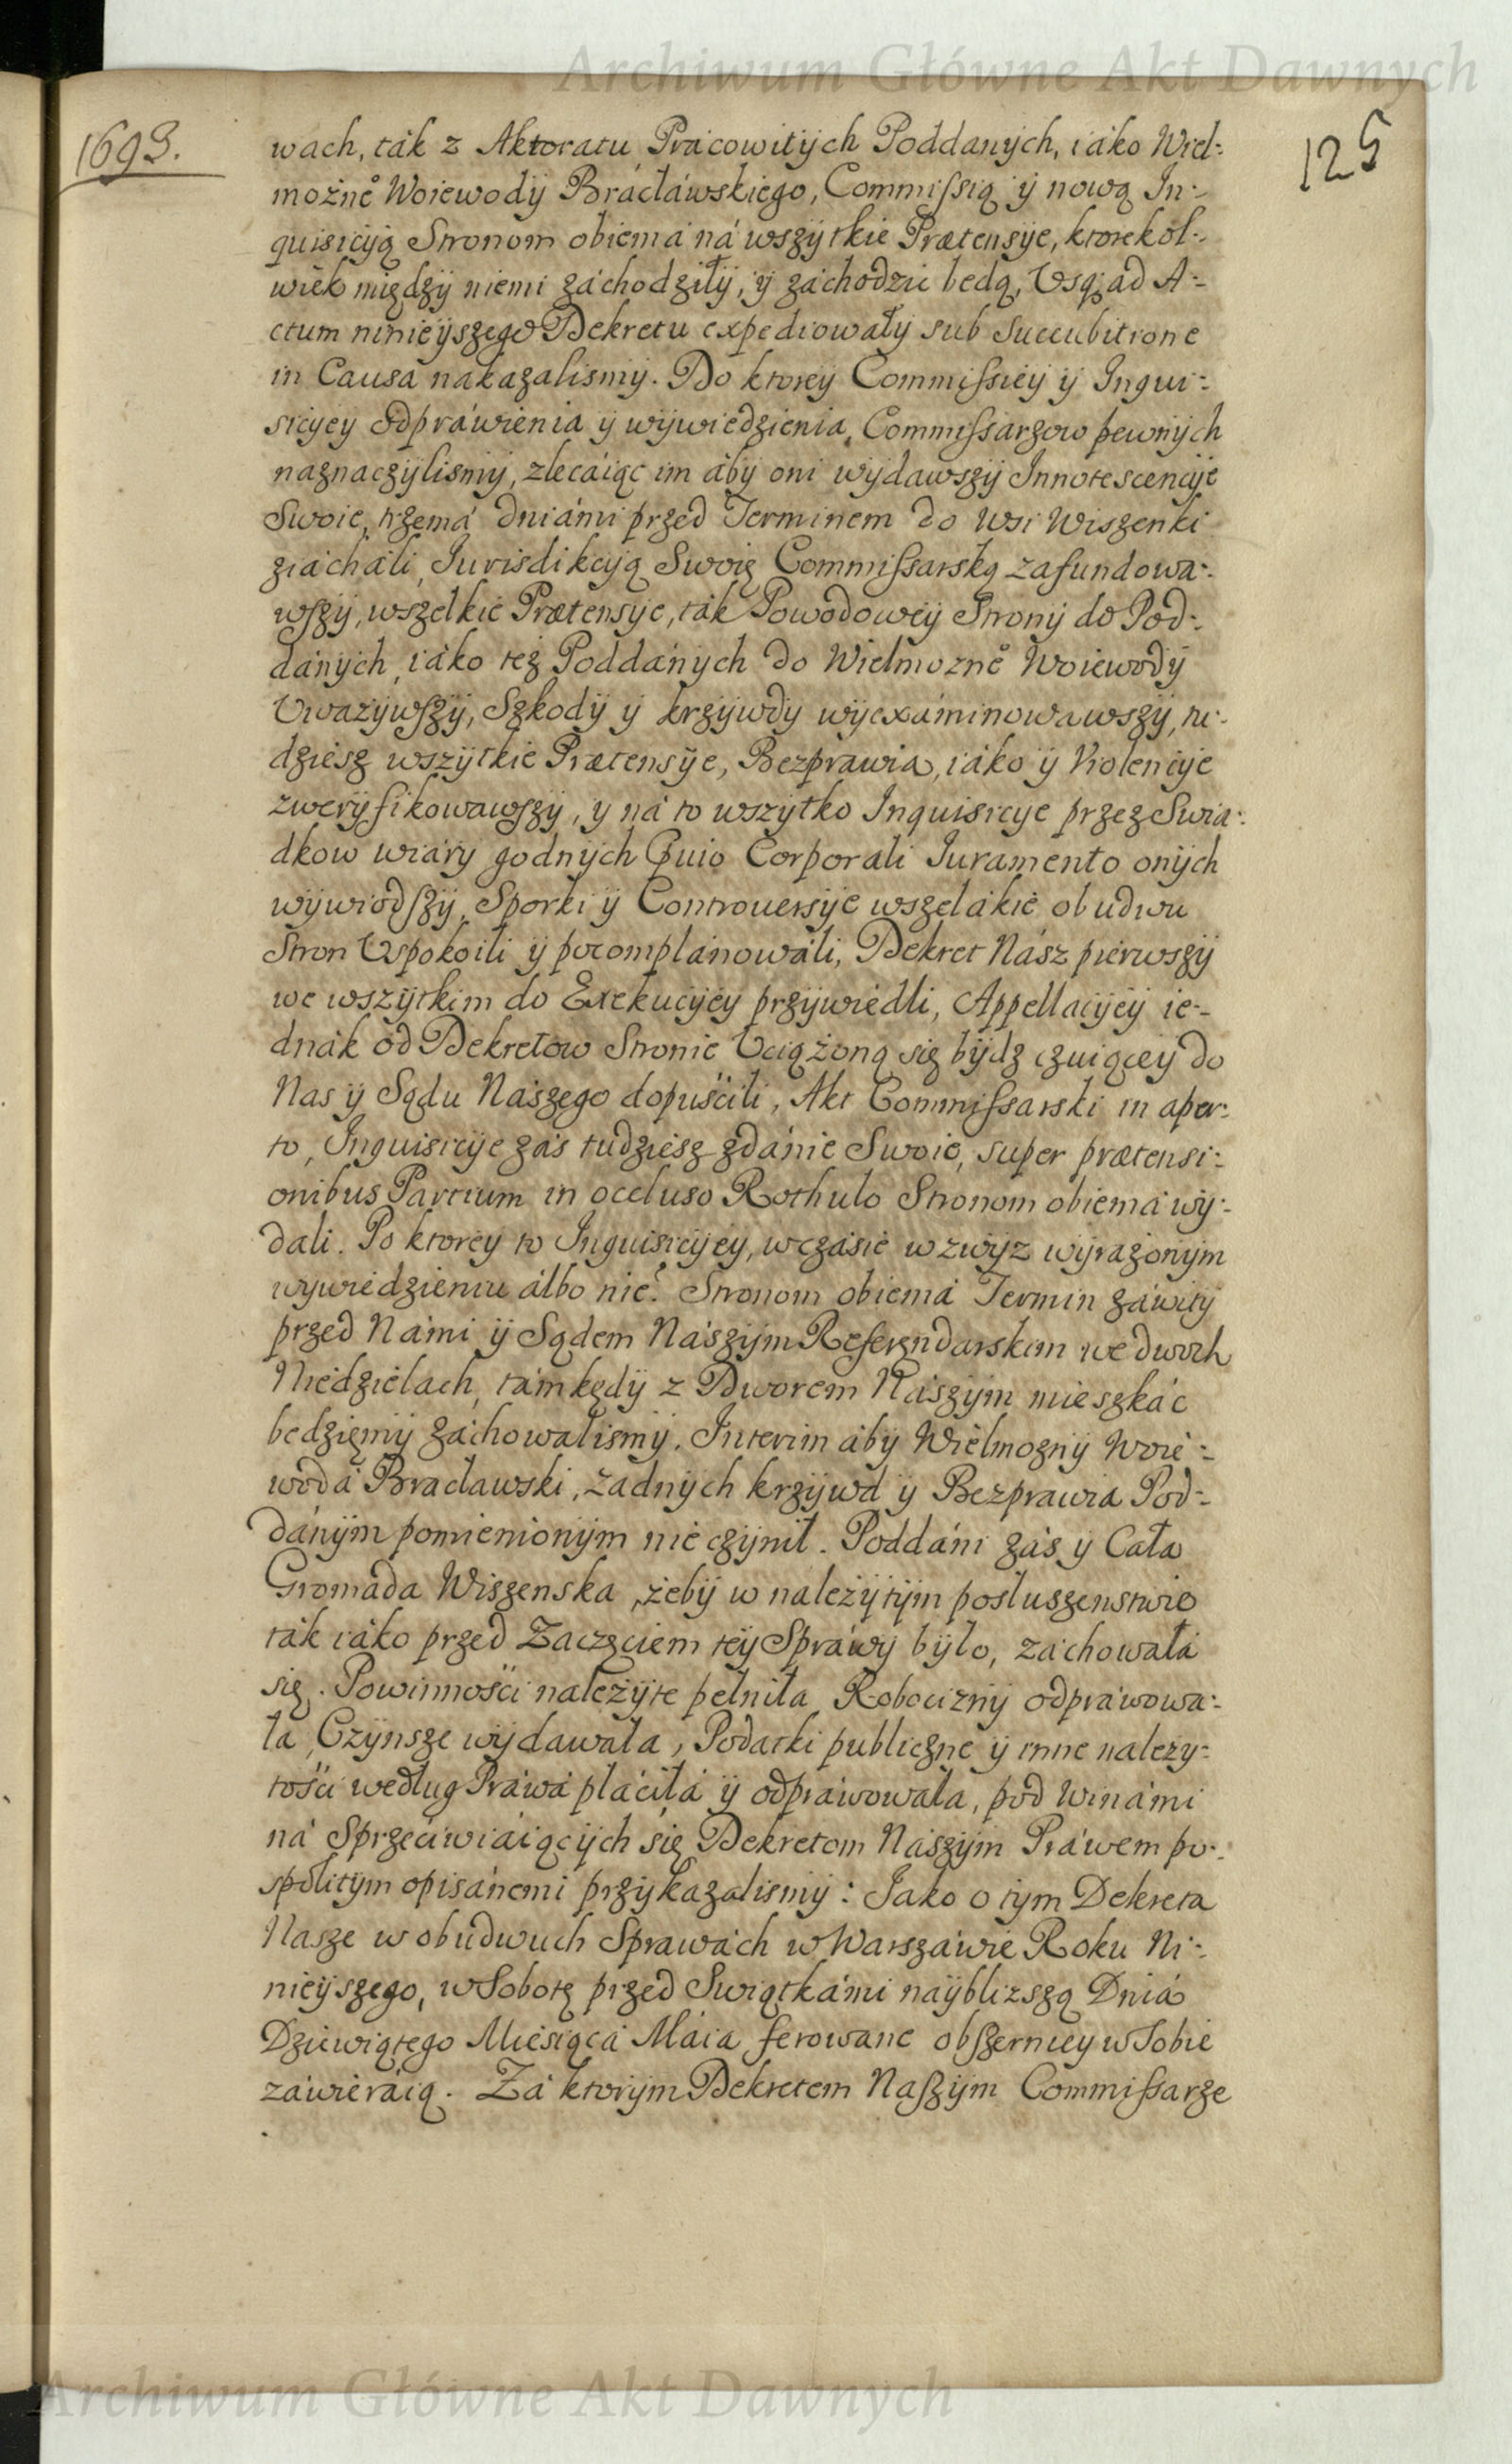 Archiwum Główne Akt Dawnych
1693.
125
wach, ták z Aktoratu Pracowitych Poddanych, iáko Wiel:
możne° Woiewody Brácłáwskiego, Commissią y nową In:
quisicyią Stronom obiemá ná wszytkie Prætensye, ktorekol:
wiek między niemi záchodziły, y záchodzic będą, Vsq; ad A:
ctum ninieyszego Dekretu expediowały sub succubitione
in Causa nakazalismy. Do ktorey Commissiey y Inqui:
sicyey odpráwienia y wywiedzienia, Commissarzow pewnych
naznaczylismy, zlecáiąc im áby oni wydawszy Innotescencye
Swoie, trzemá dniámi przed Terminem do Wsi Wiszenki
ziácháli, Iurisdikcyą Swoię Commissarską zafundowa:
wszy, wszelkie Prætensye, ták Powodowey Strony do Pod:
dánych, iáko też Poddánych do Wielmozne° Woiewody
Vważywszy, Szkody y krzywdy wyexáminowawszy, tu:
dziesz wszytkie Prætensye, Bezprawia, iáko y Violencye
zweryfikowawszy, y ná to wszytko Inquisicye przez Swia:
dkow wiáry godnych Quio Corporali Iuramento onych
wywiodszy, Sporki y Controuersye wszelákie obudwu
Stron Vspokoili y pocomplánowáli, Dekret Nász pierwszy
we wszytkim do Exekucyey przywiedli, Appellacyey ie:
dnák od Dekretow Stronie Vciążoną się bydz czuiącey do
Nas y Sądu Nászego dopuścili, Akt Commissarski in aper:
to, Inquisicye záś tudziesz zdánie Swoie, super prætensi:
onibus Partium in occluso Rothulo Stronom obiemá wy:
dali. Po ktorey to Inquisicyey, w czásie wzwyz wyrażonym
wywiedzieniu álbo nie? Stronom obiemá Termin záwity
przed Námi y Sądem Nászym Referendarskim we dwoch
Niedzielach, támkędy z Dworem Nászym mieszkác
będziemy záchowalismy. Interim áby Wielmozny Woie:
wodá Bracławski, żadnych krzywd y Bezprawia Pod:
dánym pomienionym nie czynił. Poddáni záś y Cała
Gromáda Wiszenska, żeby w należytym posłuszenstwie
ták iáko przed Zaczęciem tey Spráwy było, záchowałá
się. Powinności należyte pełniła, Robocizny odpráwowa:
ła, Czynsze wydawała, Podatki publiczne y inne należy:
tości według Práwá płáciłá y odpráwowała, pod Winámi
ná Sprzeciwiáiących się Dekretom Nászym Práwem po:
spolitym opisánemi przykazalismy: Iako o tym Dekreta
Nasze w obudwuch Sprawách w Warszáwie Roku Ni:
nieyszego, w Sobotę przed Swiątkámi naybliższą Dniá
Dziewiątego Miesiącá Máia ferowane obszerniey w Sobie
záwieráią. Zá ktorym Dekretem Naszym Commissarze
Archiwum Główne Akt Dawnych